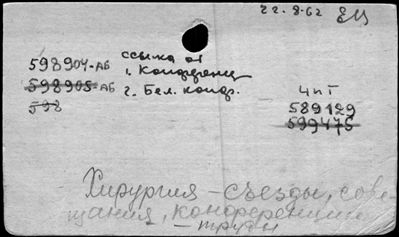 22.8.62 ЕЦ
ссылка от
598904-АБ 1. Конференц
598905-АБ 2. Бел. конф.
598
4 пт
589129
599475
Хирургия - съезды, сове-
щания, конференции
- труды